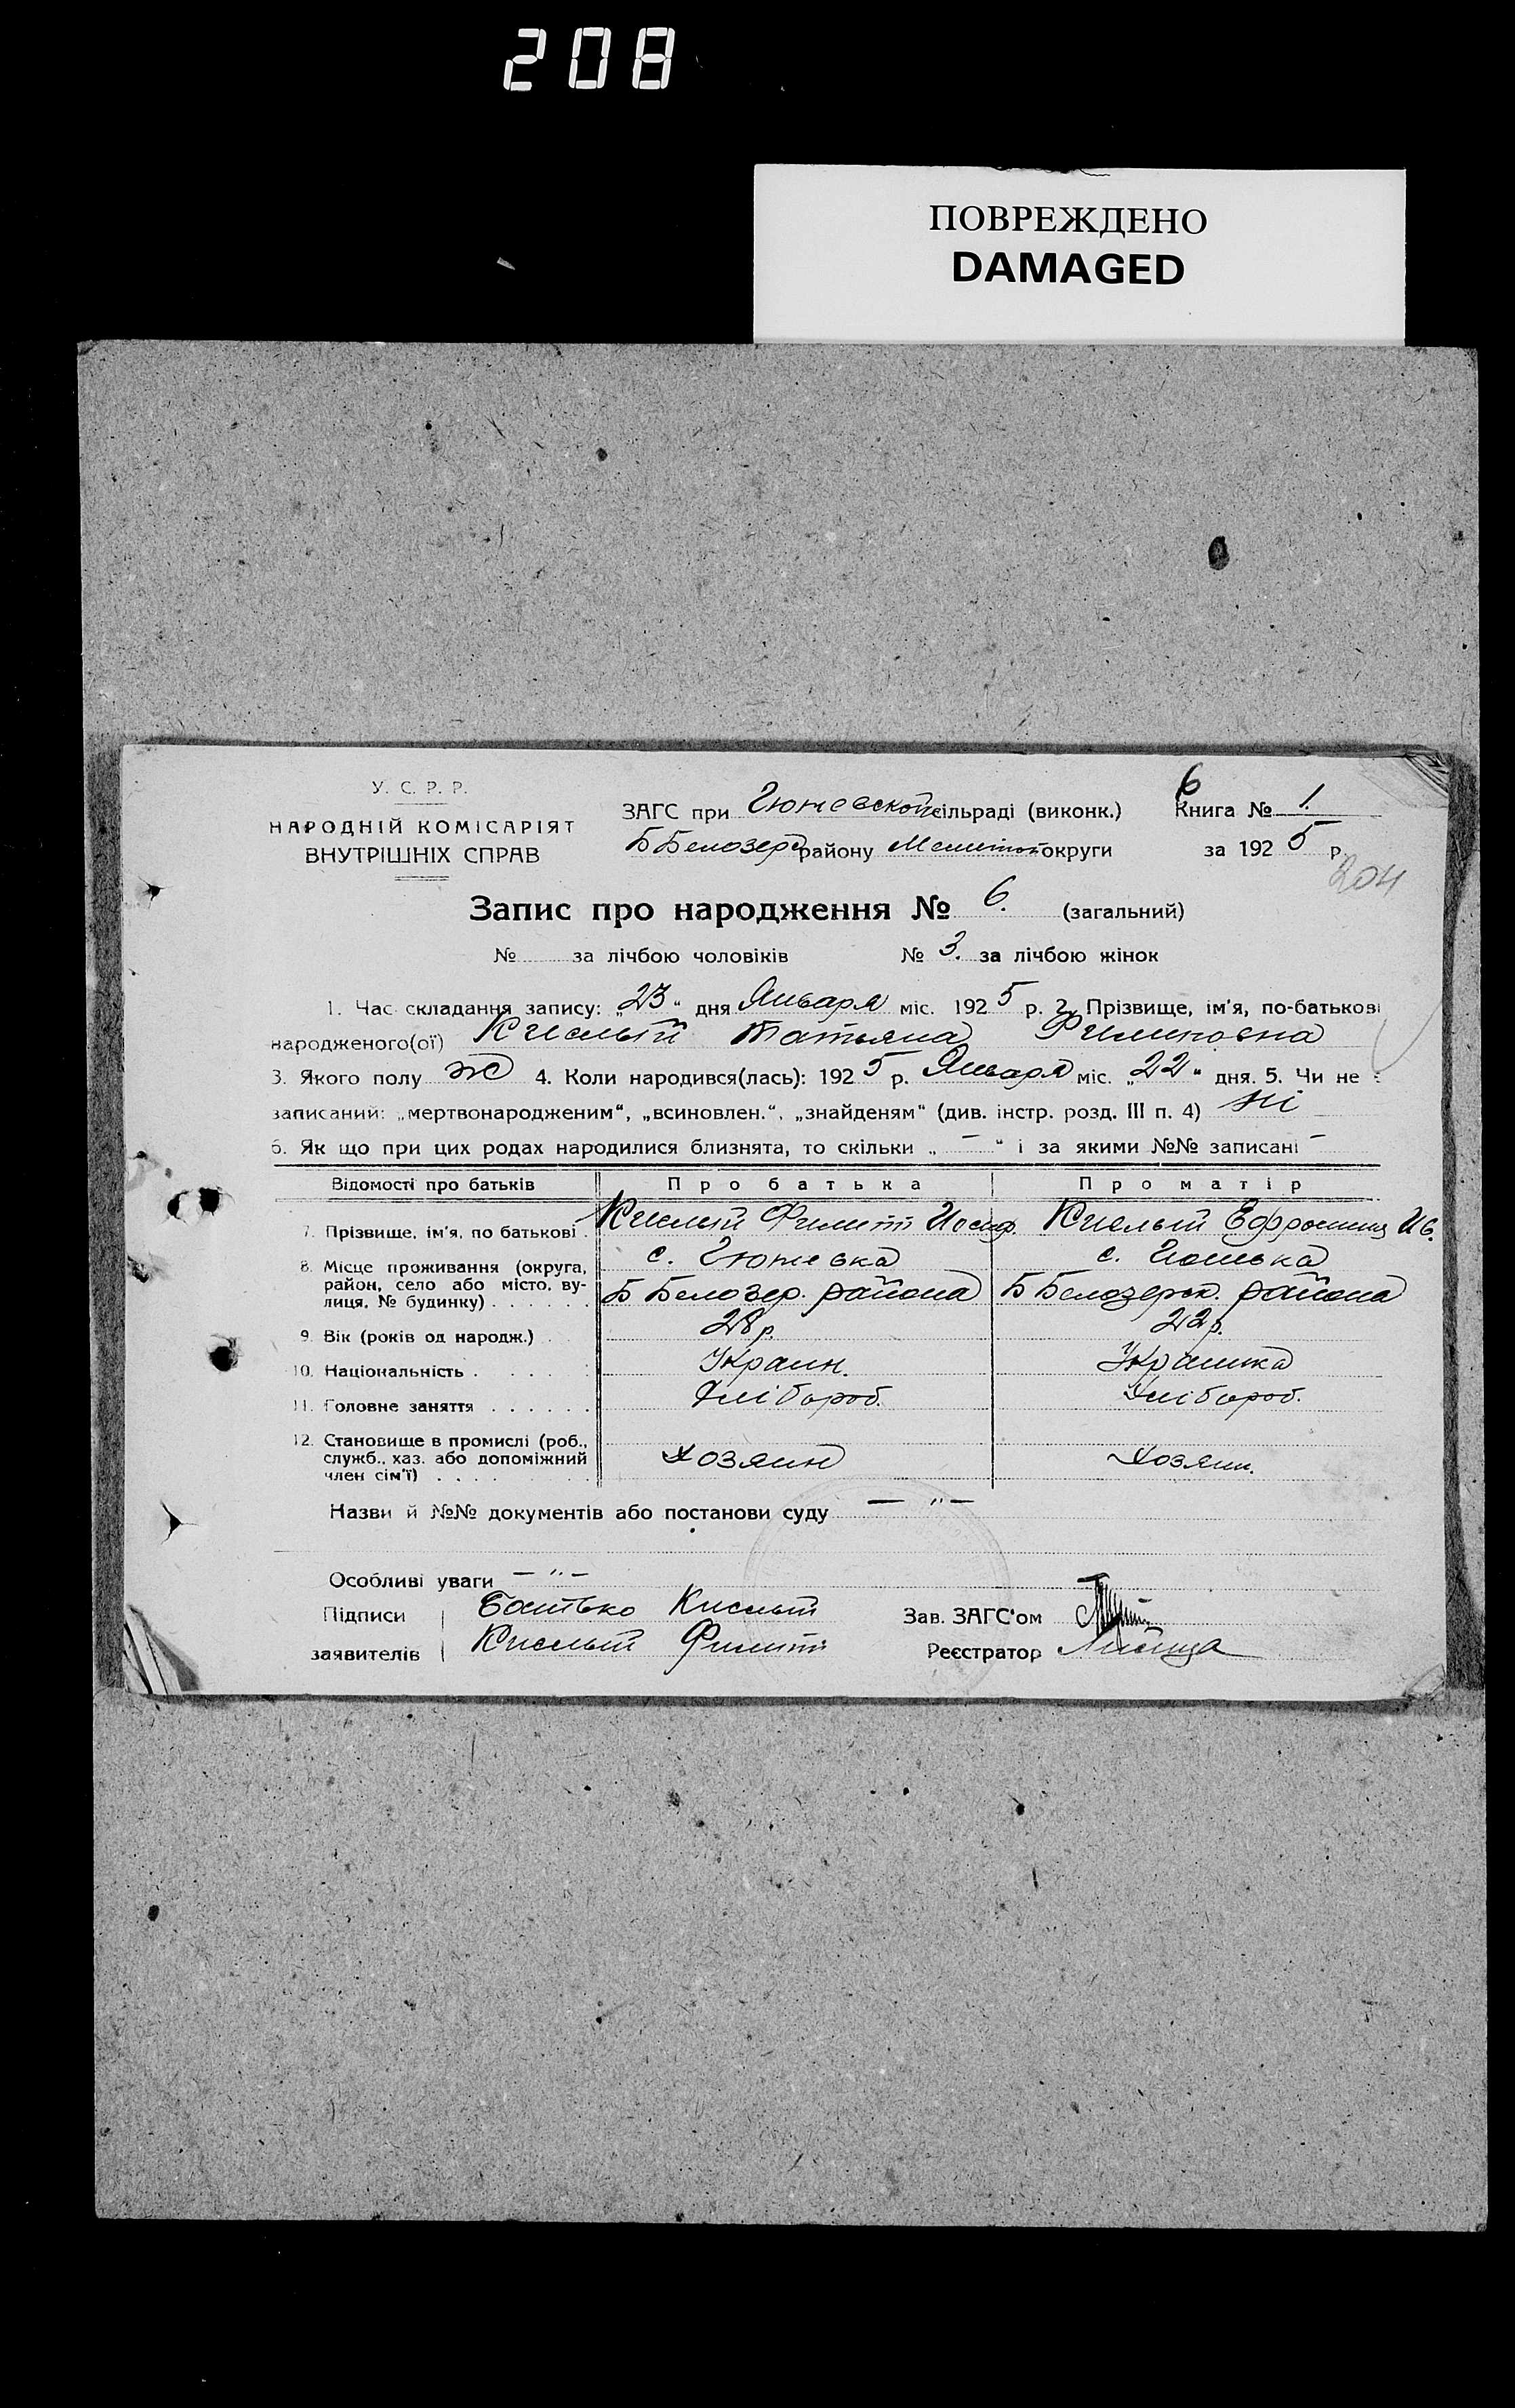 208
ПОВРЕЖДЕНО
DAMAGED
У. С. Р. Р.
НАРОДНІЙ КОМІСАРІЯТ
ВНУТРІШНІХ СПРАВ
ЗАГС при Гюневской сільраді (виконк.)
Б Белозерс району Мелитоп округи
6
Книга № 1.
за 1925 р.
204
Запис про народження № 6. (загальний)
№ за лічбою чоловіків № 3. за лічбою жінок
1. Час складання запису: „23“ дня Января міс. 1925 р. 2. Прізвище, ім'я, по-батькові
народженого(ої) Кислый Татьяна Филиповна
3. Якого полу ж 4. Коли народився(лась): 1925 р. Января міс. „22“ дня. 5. Чи не
записаний: „мертвонародженим“, „всиновлен.“, „знайденям“ (див. інстр. розд. III п. 4) ні
6. Як що при цих родах народилися близнята, то скільки „—“ і за якими №№ записані —
Відомості про батьків Про батька Про матір
7. Прізвище, ім'я, по батькові . Кислый Филипп Иосиф. Кислый Ефросиния Ив.
8. Місце проживання (округа, с. Гюневка с. Гюневка
район, село або місто, ву-
лиця, № будинку) . . . . . . Б Белозер. района Б Белозерск. района
9. Вік (років од народж.) . 28 р. 22 р.
10. Національність . . . . . Украин. Украинка
11. Головне заняття . . . . . . Хлібороб. Хлібороб.
12. Становище в промислі (роб.,
служб., хаз. або допоміжний Хозяин Хозяин.
член сім'ї) . . . .
Назви й №№ документів або постанови суду — „ —
Особливі уваги — „ —
Підписи Батько Кислый Зав. ЗАГС'ом
заявителів Кислый Филипп Реєстратор